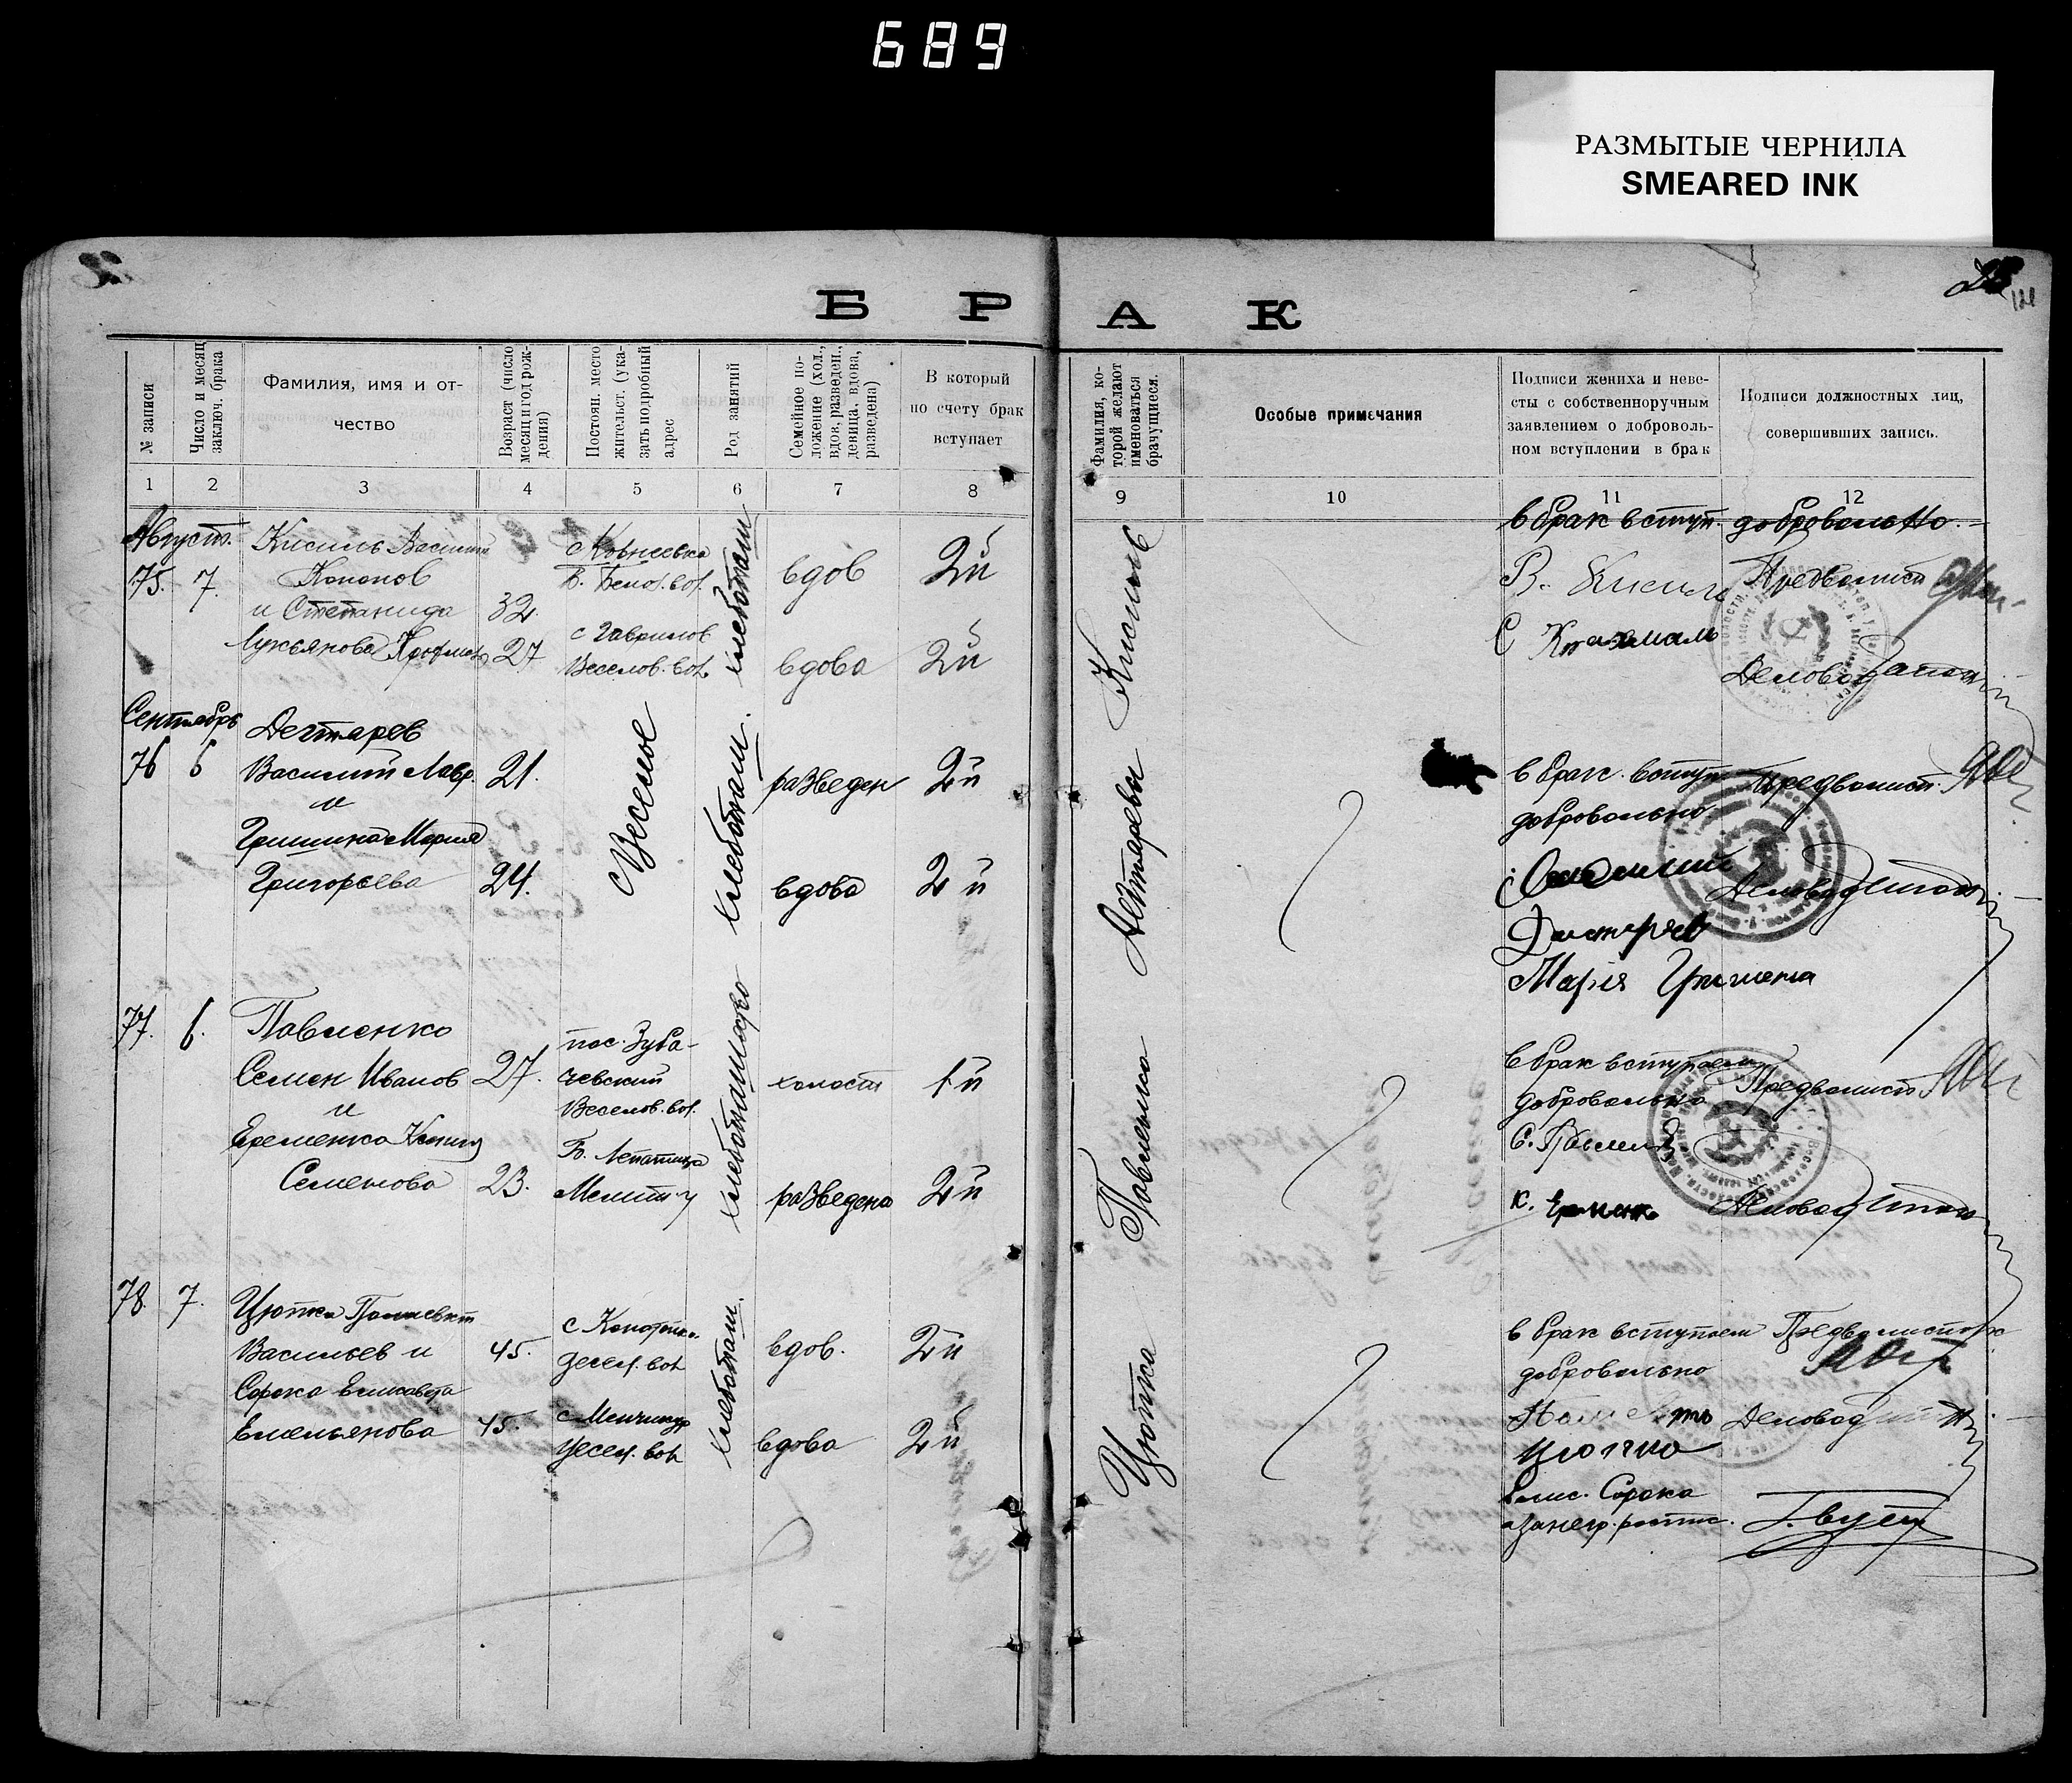 689
РАЗМЫТЫЕ ЧЕРНИЛА
SMEARED INK
Б Р А К
№ записи
Число и месяц
заключ. брака
Фамилия, имя и от-
чество
Возраст (число
месяц и год рож-
дения)
Постоян. место
жительст. (ука-
зать подробный
адрес
Род занятий
Семейное по-
ложение (хол.,
вдов, разведен.,
девица, вдова,
разведена)
В который
по счету брак
вступает
Фамилия, ко-
торой желают
именоваться
брачущиеся.
Особые примечания
Подписи жениха и неве-
сты с собственноручным
заявлением о доброволь-
ном вступлении в брак
Подписи должностных лиц,
совершивших запись.
1 2 3 4 5 6 7 8 9 10 11 12
Август.
75. 7.
Кисиль Василий
Кононов
и Степанида
Лукьянова
32
27
с Гаврилов
Веселов. вол.
хлебопаш
вдов
вдова
2й
2й
Кисиль
в брак вступ. добровольно.
В. Кисиль
С Крахмаль
Предволисп
Деловод
Сентябрь
76 6
Дегтарев
Василий Лавр.
и
Гришина Мария
Григорьева
21.
24.
с Веселое
хлебопаш.
разведен
вдова
2й
2й
Дегтаревы
в брак. вступ.
добровольно
Предволисп.
Деловод
Марія Гришена
77. 6.
Павленко
Семен Иванов
и
Еременко
Семенова
27.
23.
пос. Зуба-
чевский
Веселов. вол.
Б. Лепатиха
Мелит у
хлебопашество
холост
разведена
1й
2й
Павленко
в брак вступаем
добровольно
Предволисп
Деловод
78. 7.
Цютка
Васильев и
Сорока Елисавета
Емельянова
45.
45.
Весел. вол.
с Менчикур
Весел. вол
хлебопаш.
вдов.
вдова
2й
2й
Цютка
в брак вступаем
добровольно
Предволиспок
Деловод
Цютка
Елис. Сорока